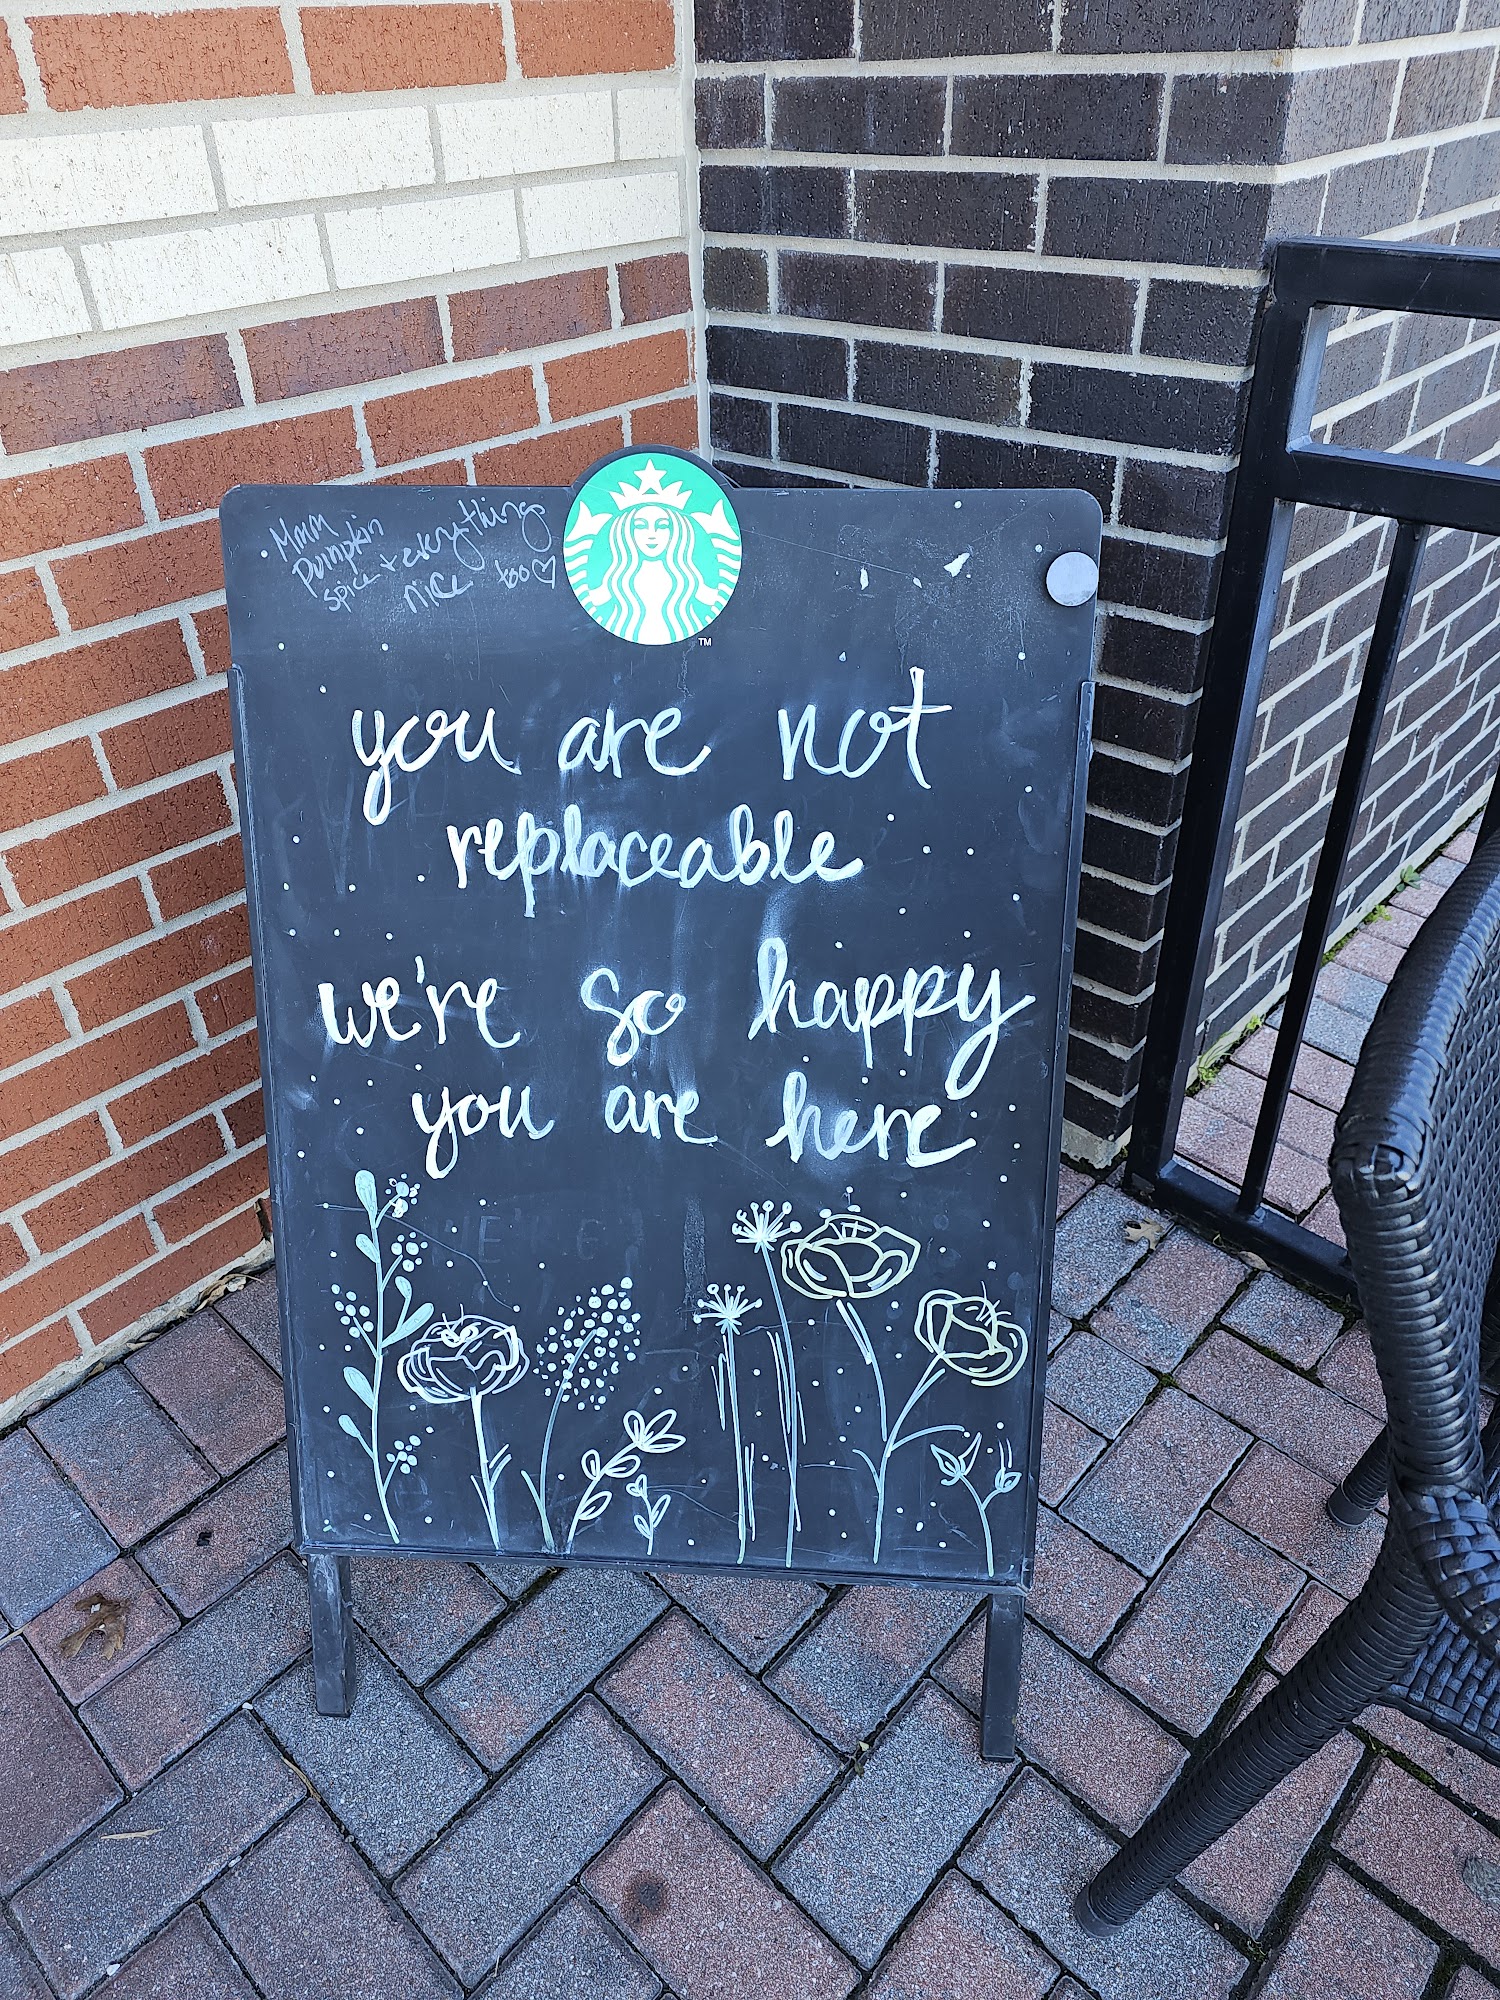 Mmm
pumpkin
spice + everything
nice too♡
TM
you are not
replaceable
we're so happy
you are here